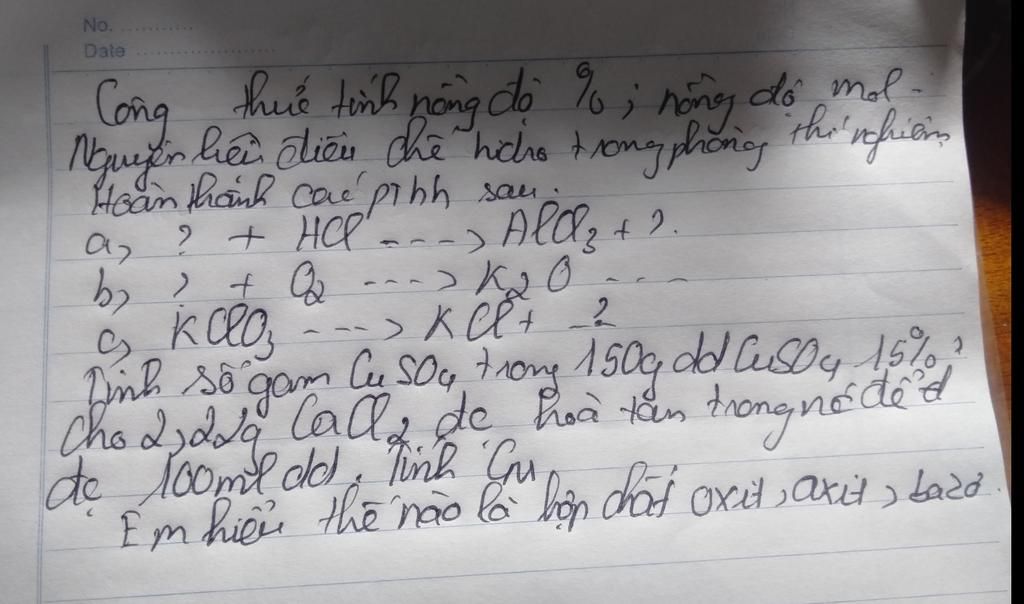 No. ............
Date ........................
Công thưć tính nồng độ % ; nồng độ mol -
Nguyên liêụ điều chế hidro trong phòng thí nghiệm
Hoàn thành các pthh sau.
a, ? + HCl ---> AlCl3 + ?.
b, ? + O2 ---> K2O ---
c, KClO3 ---> KCl + -?
Tính số gam CuSO4 trong 150g dd CuSO4 15% ?
cho 2,22g CaCl2 đc hoà tan trong nớ để đ
đc 100ml dd. Tính CM
Em hiêủ thế nào là hợp chất oxit, axit, bazơ.